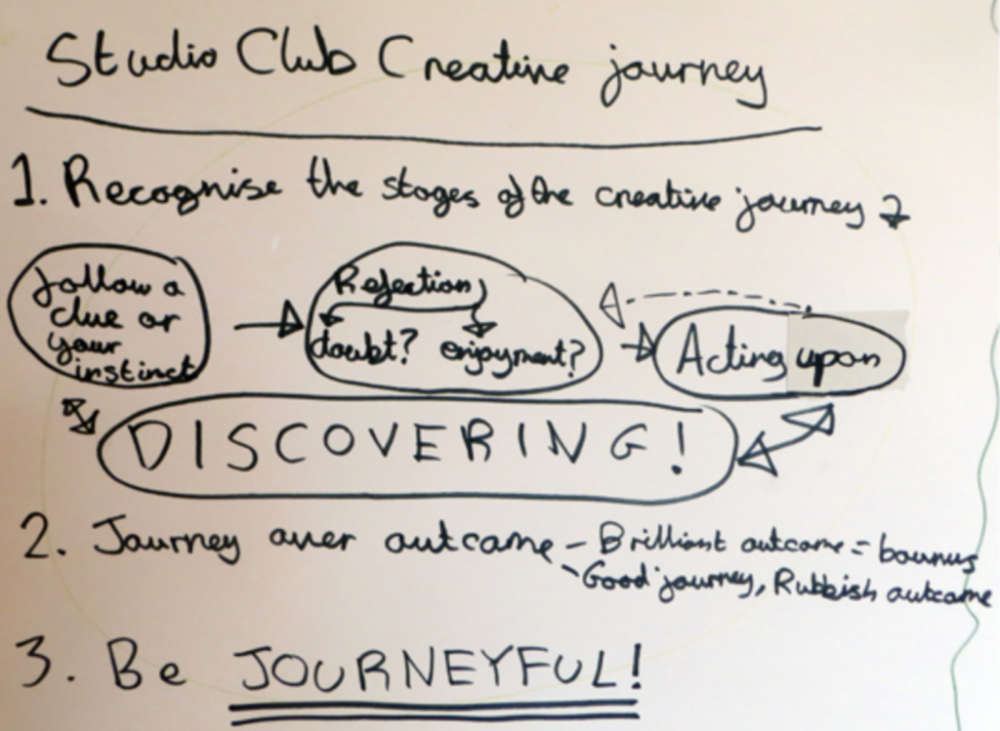 Studio Club Creative journey
1. Recognise the stages of the creative journey
follow a
clue or
your
instinct
Rejection
doubt? enjoyment?
Acting upon
DISCOVERING!
2. Journey over outcome - Brilliant outcome = bounus
- Good journey, Rubbish outcome
3. Be JOURNEYFUL!